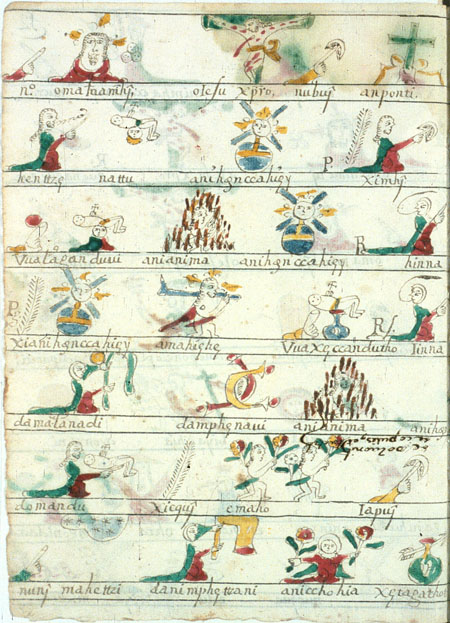 nº omataamhȷ olesu xpro, nubuȷ anponti.
henttzẹ nattu anihẹnccahiey P. ximhȷ
Vualaganduui anianima anihẹnccahiey R hinna
P. xianihẹnccahiey amahiehẹ Vuaxẹccandutho R/ Iinna
damatanadi damphẹnaui anianima anihẹn
domandu xicquȷ emaho Iapuȷ
nunȷ mahettzi danimphettzani anicchohia xẹtagathot